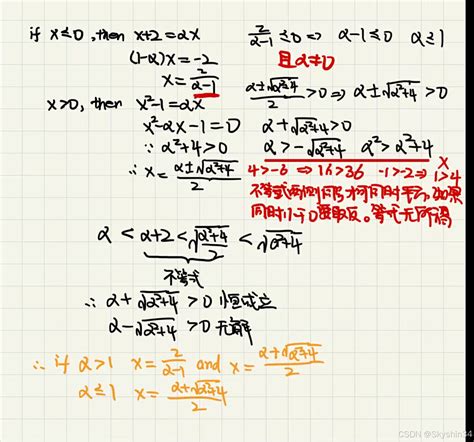 if x≤0, then x+2=αx
(1-α)x=-2
x=2/(α-1)
2/(α-1)≤0 => α-1≤0 α≤1
且α≠0
x>0, then x²-1=αx
x²-αx-1=0
∵ α²+4>0
∴ x=(α±√(α²+4))/2
(α±√(α²+4))/2>0 => α±√(α²+4)>0
α+√(α²+4)>0
α>-√(α²+4) α²>α²+4 x
4>-6 => 16>36 -1>-2 => 1>4
不等式两侧同号,才可同时平方,如果
同时小于0要取反。等式无所谓
α<α+2<√(α²+4)/2<√(α²+4)
不等式
∴ α+√(α²+4)>0 恒成立
α-√(α²+4)>0 无解
∴ if α>1 x=2/(α-1) and x=(α+√(α²+4))/2
α≤1 x=(α+√(α²+4))/2
CSDN @Skyshin34